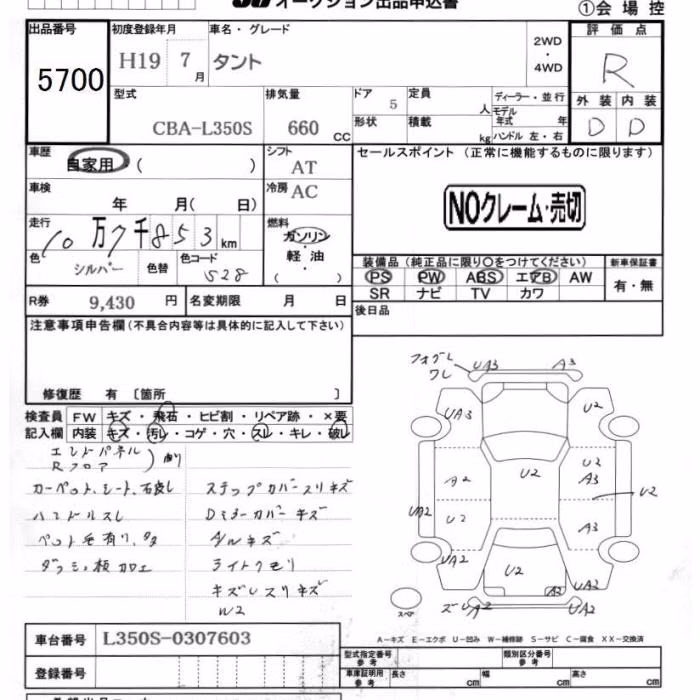 オークション出品申込書
①会場控
出品番号
5700
初度登録年月
H19 7月
車名・グレード
タント
2WD
・
4WD
評価点
R
型式
CBA-L350S
排気量
660 CC
ドア
5
定員
人
形状
積載
kg
ディーラー・並行
モデル年式 年
ハンドル 左・右
外装 内装
D D
車歴
自家用 ( )
シフト
AT
車検
年 月( 日)
冷房
AC
走行
10万7千853km
燃料
ガソリン
・
軽油
( )
色
シルバー
色替
色コード
S28
R券
9,430 円
名変期限 月 日
セールスポイント (正常に機能するものに限ります)
NOクレーム・売切
装備品 (純正品に限り○をつけてください)
PS PW ABS エアB AW
SR ナビ TV カワ
新車保証書
有・無
後日品
注意事項申告欄(不具合内容等は具体的に記入して下さい)
修復歴 有 〔箇所 〕
検査員記入欄
FW キズ・飛石・ヒビ割・リペア跡・×要
内装 キズ・汚レ・コゲ・穴・スレ・キレ・破レ
エンドパネル
Rフロア
カーペット、シート、
ハンドルスレ
ペット毛有り、
ダッシュ板加工
ステップカバースリキズ
Dミラーカバーキズ
A/Wキズ
ライトクモリ
キズレスリキズ
W2
フォグレ
ワレ
UA3 A3
UA3 U2
A2 U2 U2
A3
U2
UA2 U2 A3
UA2 U2 A2 UA2
スペア
ズレUA2 UA2
A-キズ E-エクボ U-凹み W-補修跡 S-サビ C-腐食 XX-交換済
車台番号
L350S-0307603
登録番号
型式指定番号
参考
類別区分番号
参考
車庫証明用
参考
長さ cm
幅 cm
高さ cm